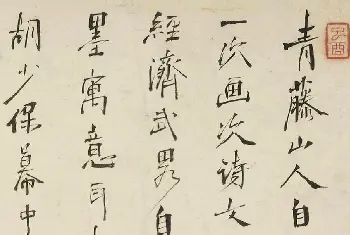 青藤山人自
一次画次诗文
經濟武略自
墨寓意耳
胡少保幕中